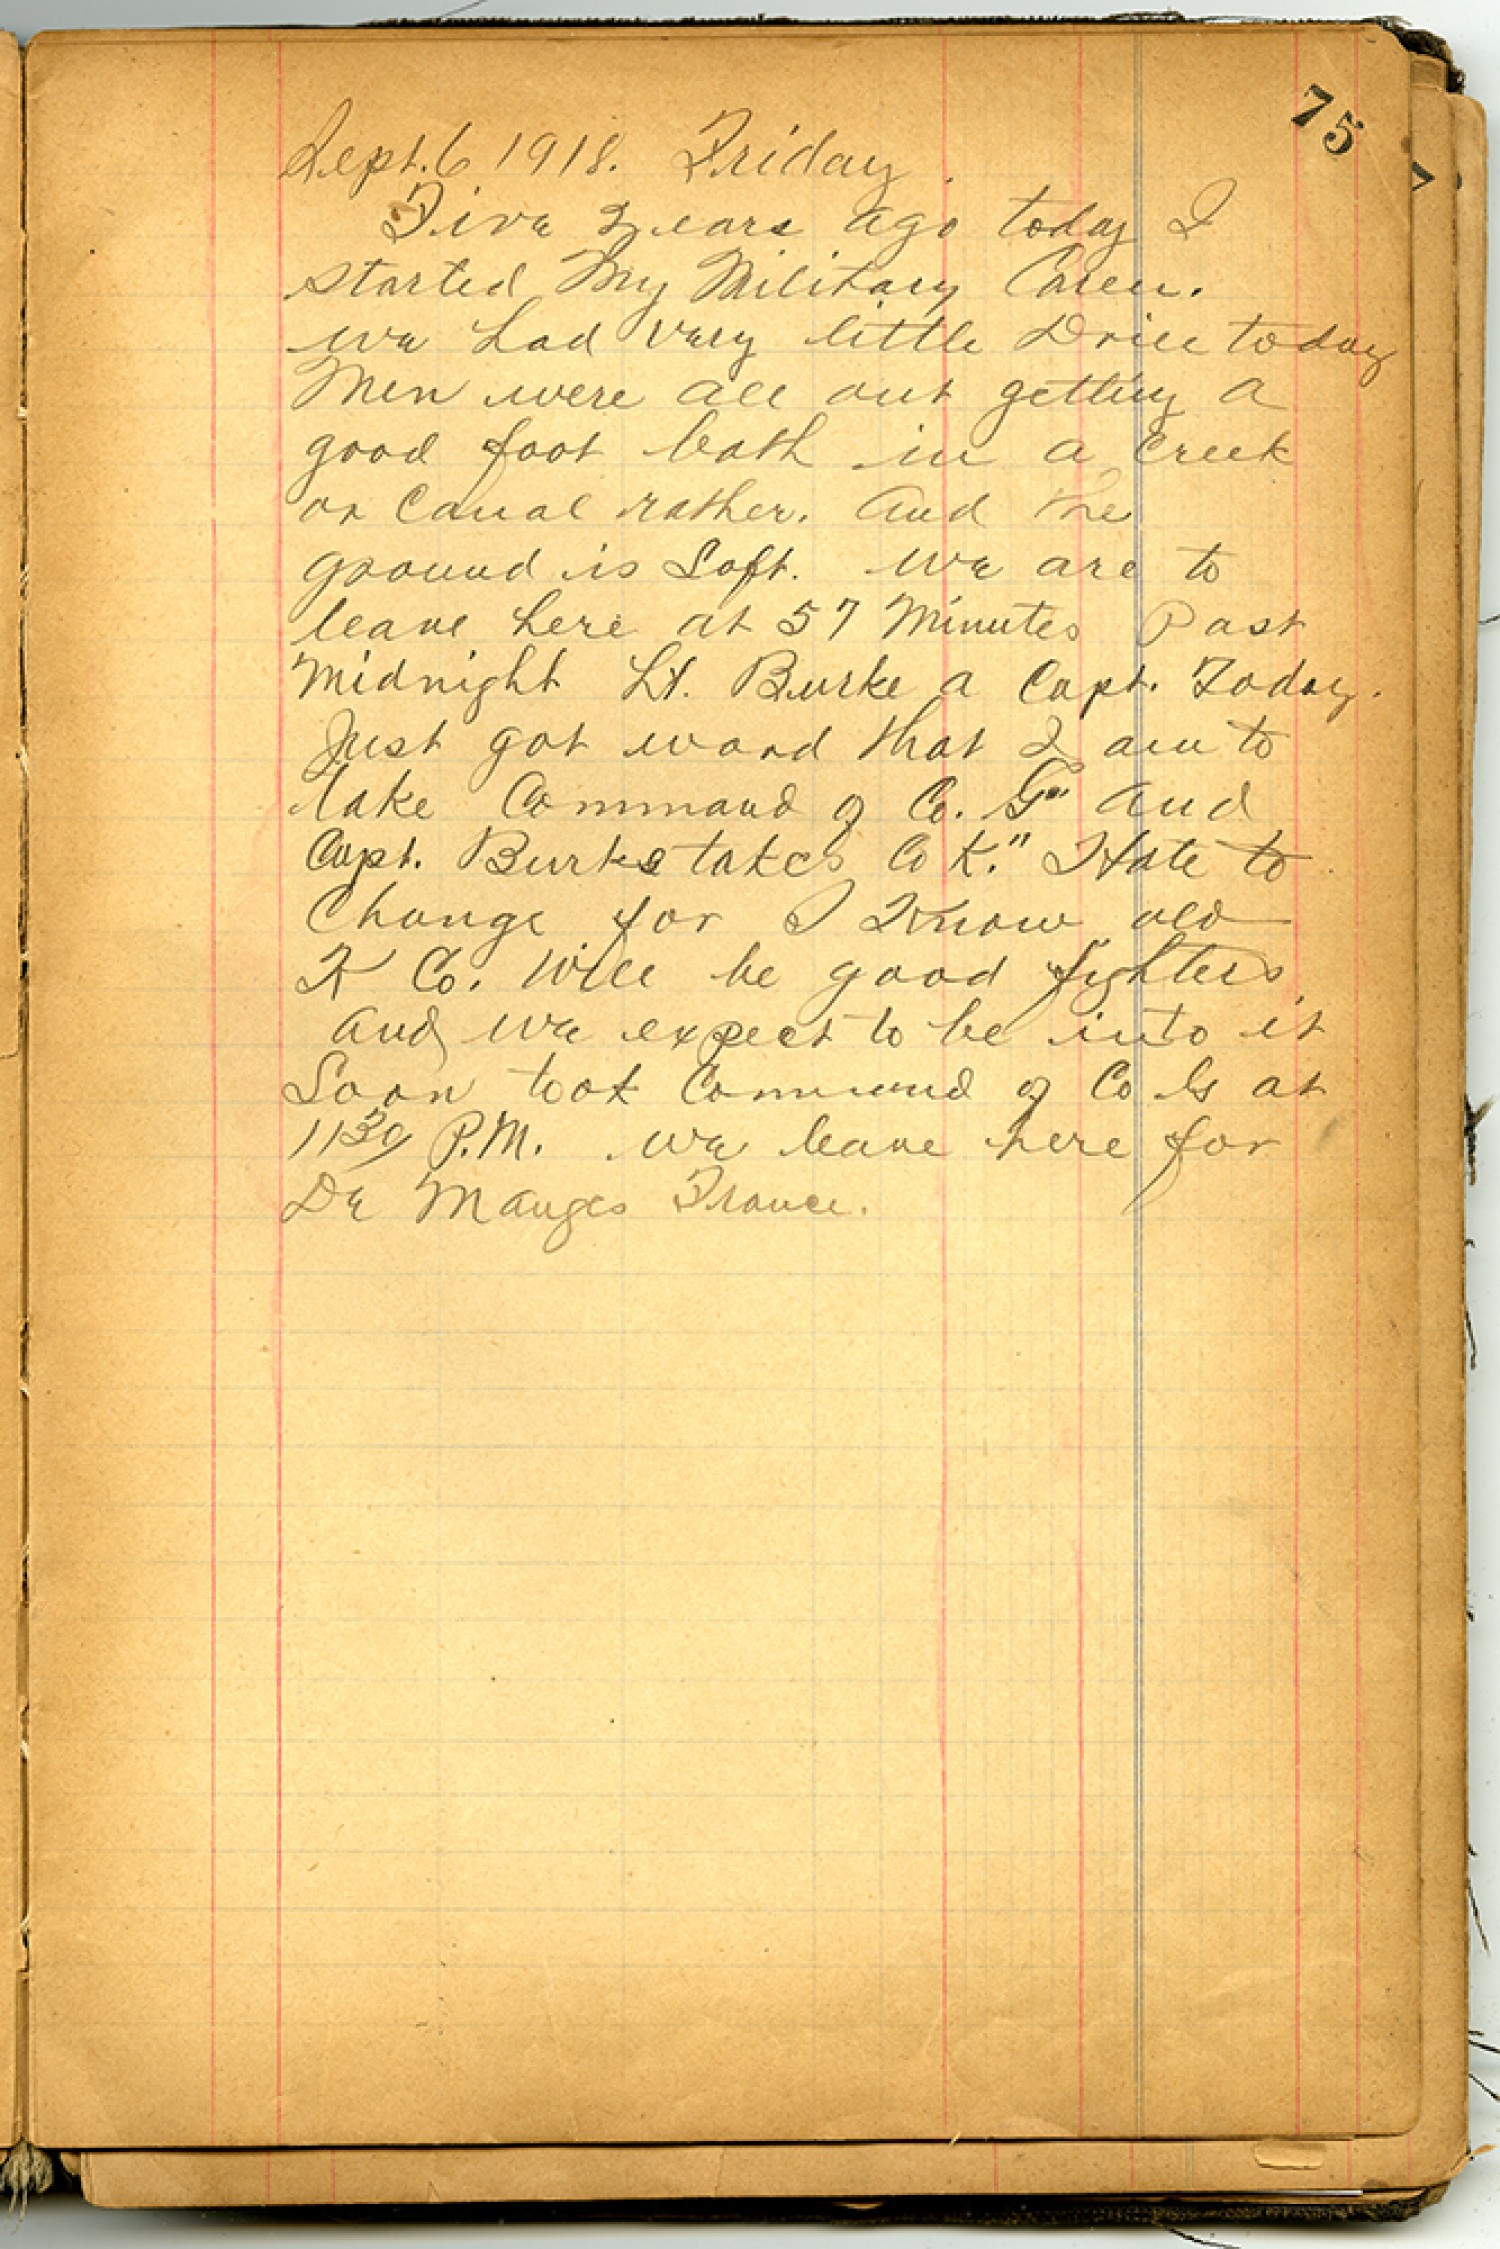 75
Sept. 6 1918. Friday.
Five years ago today I
started My Military Career.
we had very little Drill today
Men were all out getting a
good foot bath in a creek
or Canal rather. And the
ground is Soft. we are to
leave here at 57 Minutes Past
Midnight Lt. Burke a Capt. Today.
Just got word that I am to
take Command of Co. G" and
Capt. Burke takes Co K." I Hate to
Change for I Know old
K Co. Will be good fighters,
and we expect to be into it
Soon took Command of Co G at
11 30 P.M. we leave here for
De Manges France.